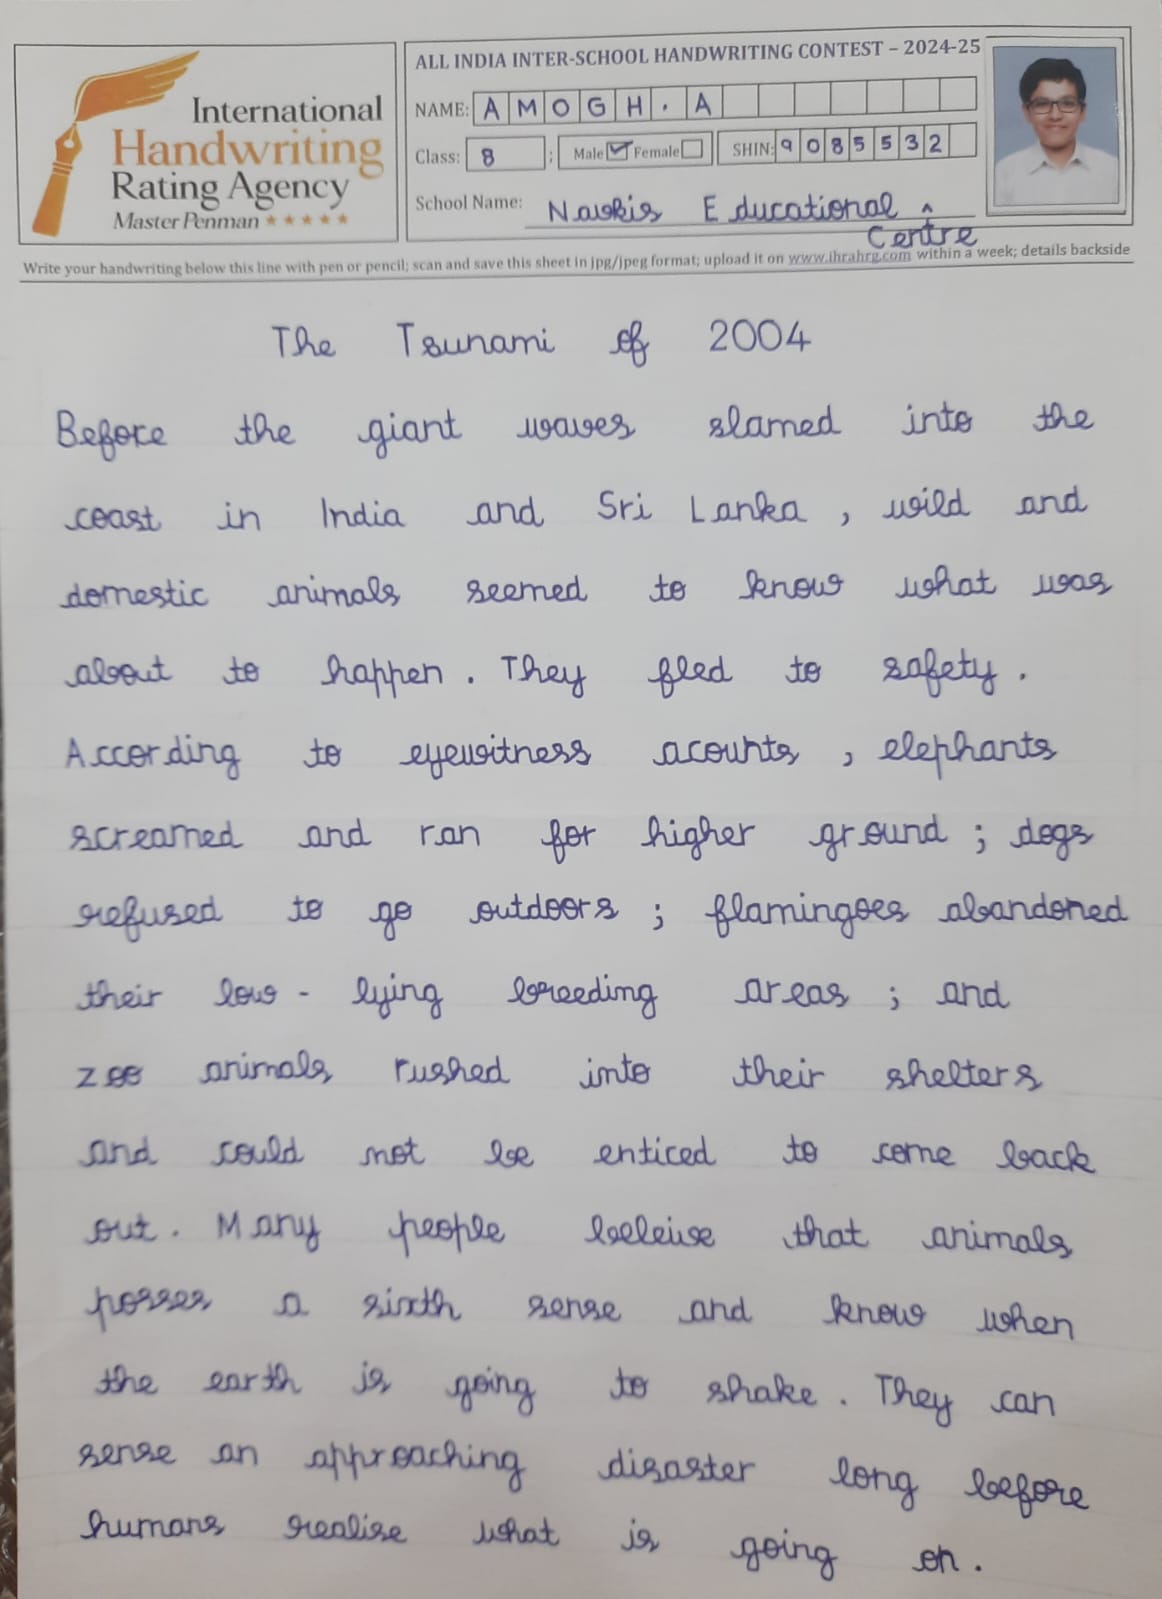 International
Handwriting
Rating Agency
Master Penman ★★★★★
ALL INDIA INTER-SCHOOL HANDWRITING CONTEST – 2024-25
NAME: AMOGH. A
Class: 8 ; Male ✓ Female SHIN: 9085532
School Name: Navkis Educational ^
Centre
Write your handwriting below this line with pen or pencil; scan and save this sheet in jpg/jpeg format; upload it on www.ihrahrg.com within a week; details backside
The Tsunami of 2004
Before the giant waves slamed into the
coast in India and Sri Lanka, wild and
domestic animals seemed to know what was
about to happen. They fled to safety.
According to eyewitness acounts, elephants
screamed and ran for higher ground; dogs
refused to go outdoors; flamingoes abandoned
their low-lying breeding areas; and
zoo animals rushed into their shelters
and could not be enticed to come back
out. Many people beleive that animals
posses a sixth sense and know when
the earth is going to shake. They can
sense an approaching disaster long before
humans realise what is going on.